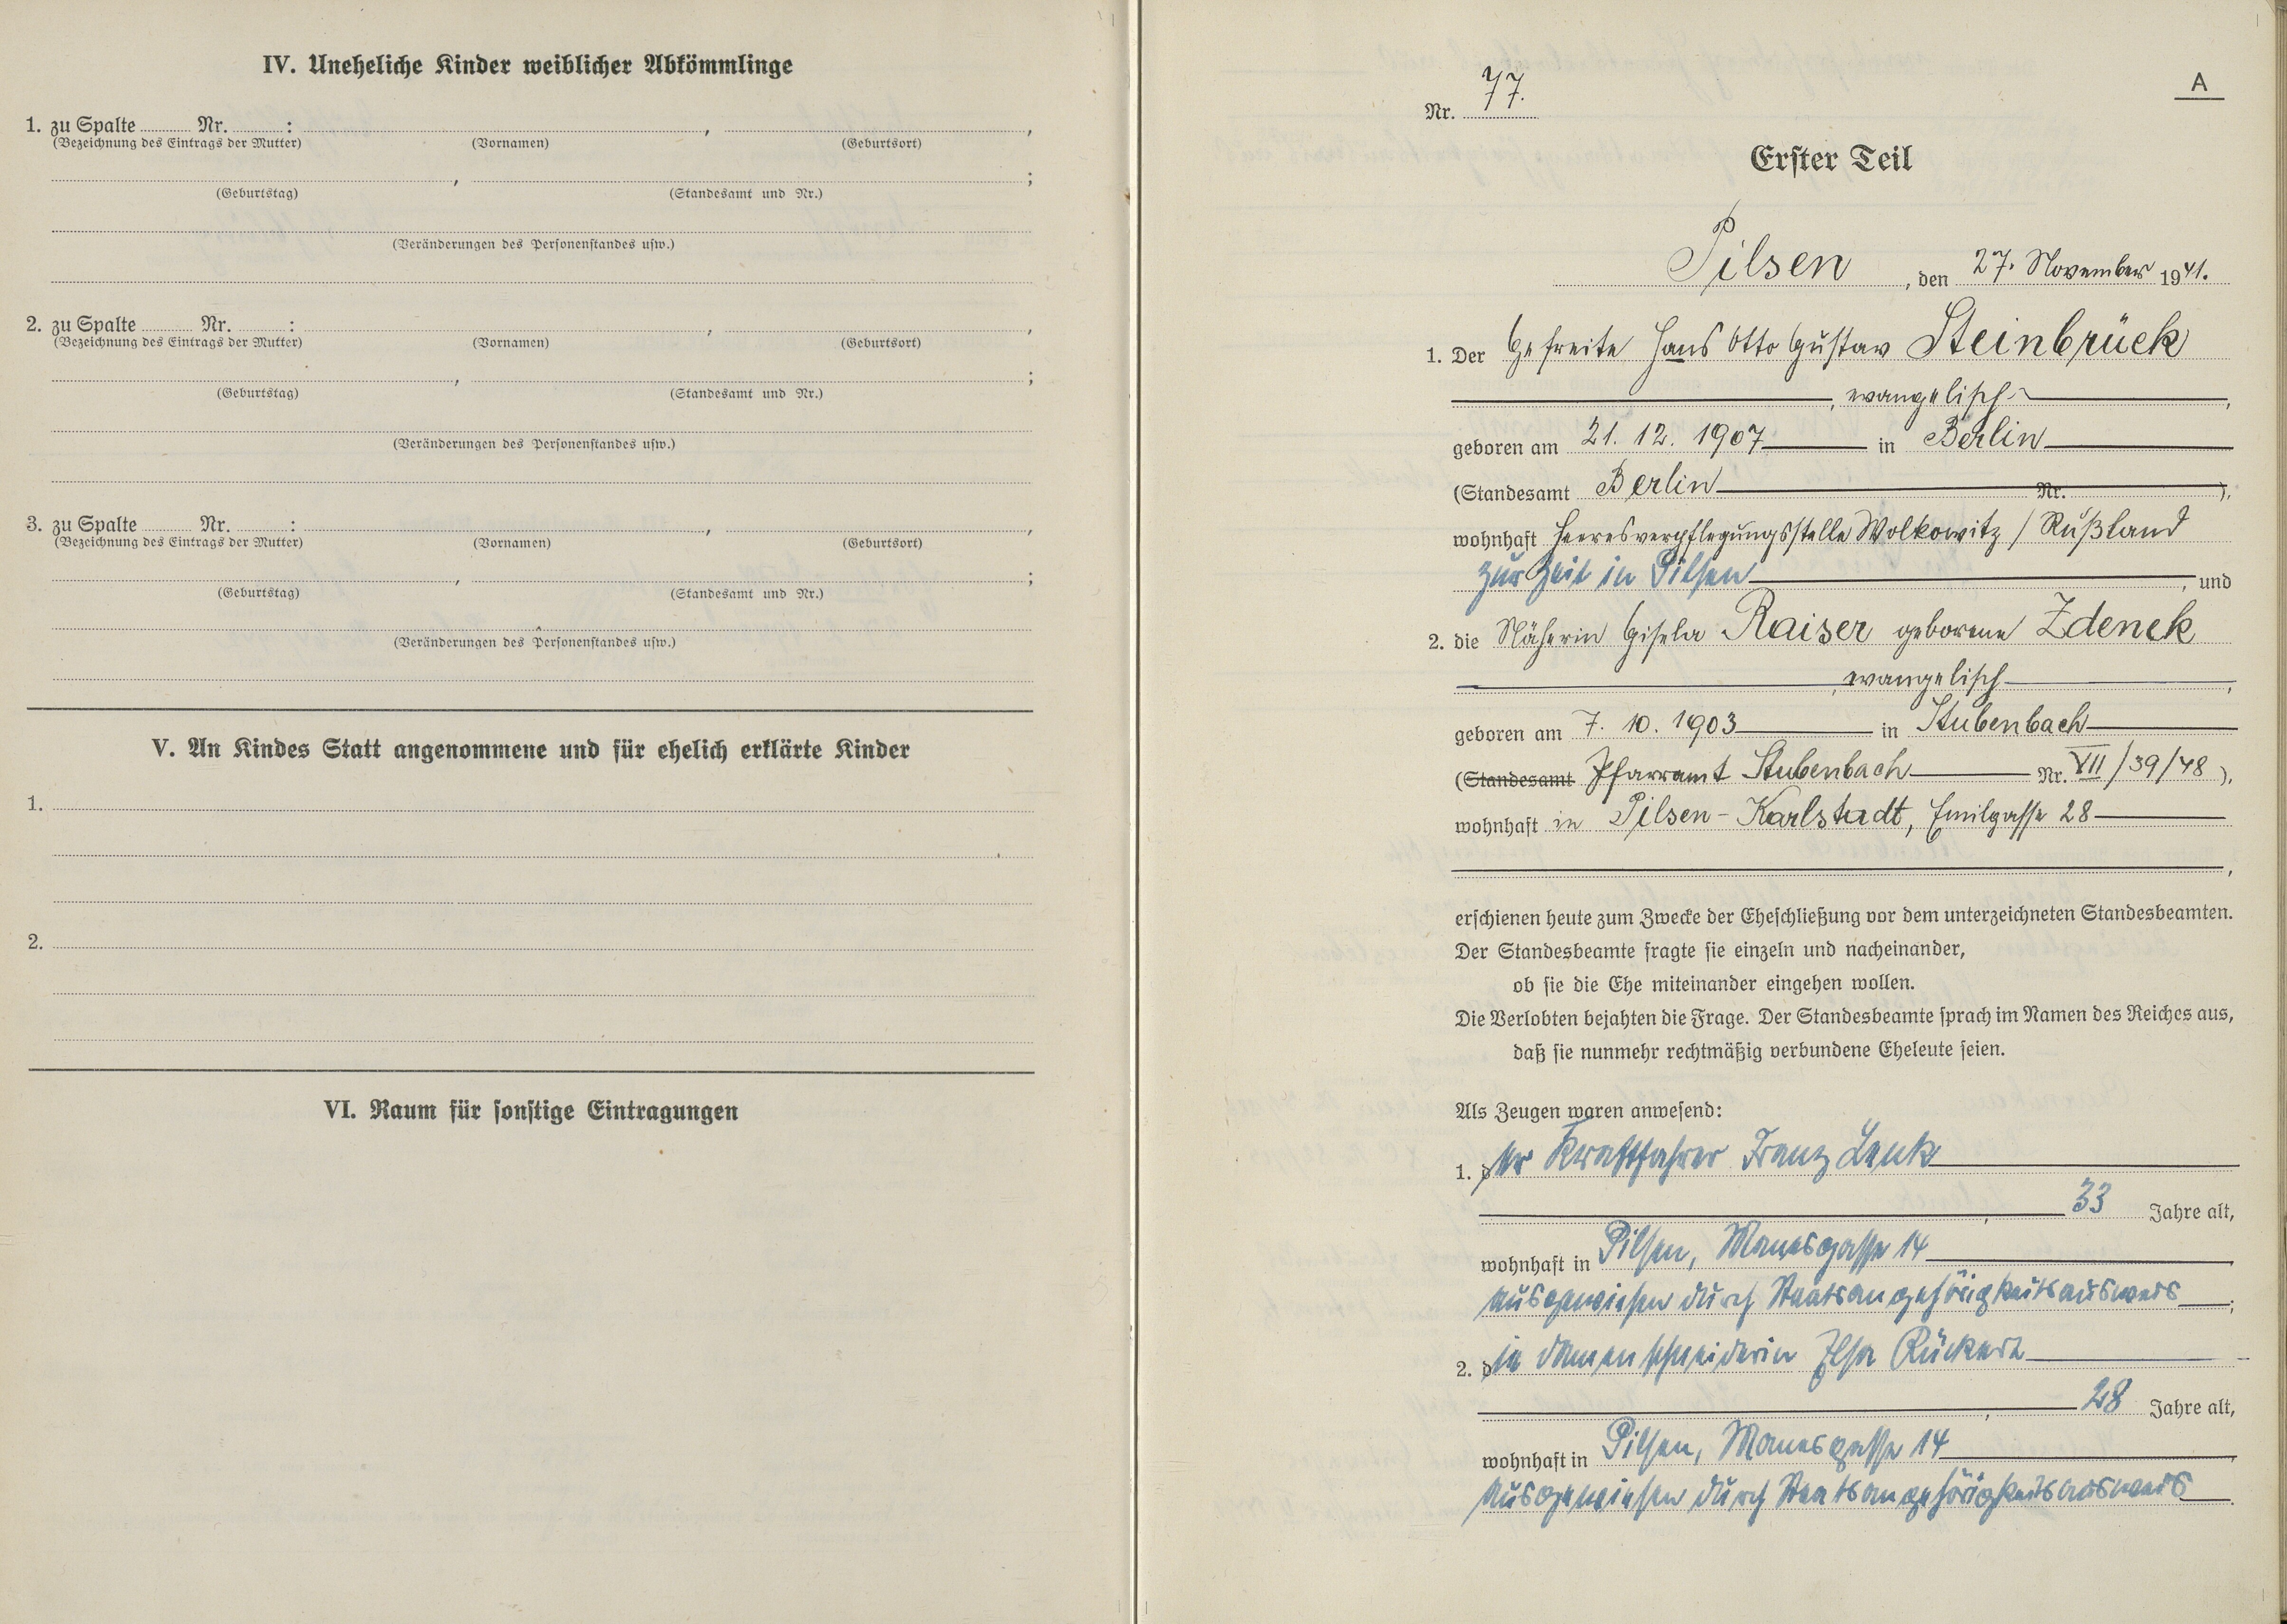 IV. Uneheliche Kinder weiblicher Abkömmlinge
1. zu Spalte Nr. : , ,
(Bezeichnung des Eintrags der Mutter) (Vornamen) (Geburtsort)
, ;
(Geburtstag) (Standesamt und Nr.)
(Veränderungen des Personenstandes usw.)
2. zu Spalte Nr. : , ,
(Bezeichnung des Eintrags der Mutter) (Vornamen) (Geburtsort)
, ;
(Geburtstag) (Standesamt und Nr.)
(Veränderungen des Personenstandes usw.)
3. zu Spalte Nr. : , ,
(Bezeichnung des Eintrags der Mutter) (Vornamen) (Geburtsort)
, ;
(Geburtstag) (Standesamt und Nr.)
(Veränderungen des Personenstandes usw.)
V. An Kindes Statt angenommene und für ehelich erklärte Kinder
1.
2.
VI. Raum für sonstige Eintragungen
A
Nr. 77.
Erster Teil
Pilsen, den 27. November 1941.
1. Der Gefreite Hans Otto Gustav Steinbrück
, evangelisch,
geboren am 21. 12. 1907 in Berlin
(Standesamt Berlin Nr. ),
wohnhaft Heeresverpflegungsstelle Wolkowitz / Rußland
zur Zeit in Pilsen, und
2. die Näherin Gisela Raiser geborene Zdenek
, evangelisch,
geboren am 7. 10. 1903 in Stubenbach
(Standesamt Pfarramt Stubenbach Nr. VII/39/48 ),
wohnhaft in Pilsen-Karlstadt, Emilgasse 28
,
erschienen heute zum Zwecke der Eheschließung vor dem unterzeichneten Standesbeamten.
Der Standesbeamte fragte sie einzeln und nacheinander,
ob sie die Ehe miteinander eingehen wollen.
Die Verlobten bejahten die Frage. Der Standesbeamte sprach im Namen des Reiches aus,
daß sie nunmehr rechtmäßig verbundene Eheleute seien.
Als Zeugen waren anwesend:
1. der Kraftfahrer Franz Lenk
, 33 Jahre alt,
wohnhaft in Pilsen, Manesgasse 14
ausgewiesen durch Staatsangehörigkeitsausweis;
2. die Damenschneiderin Ilse Rückert
, 28 Jahre alt,
wohnhaft in Pilsen, Manesgasse 14
ausgewiesen durch Staatsangehörigkeitsausweis.